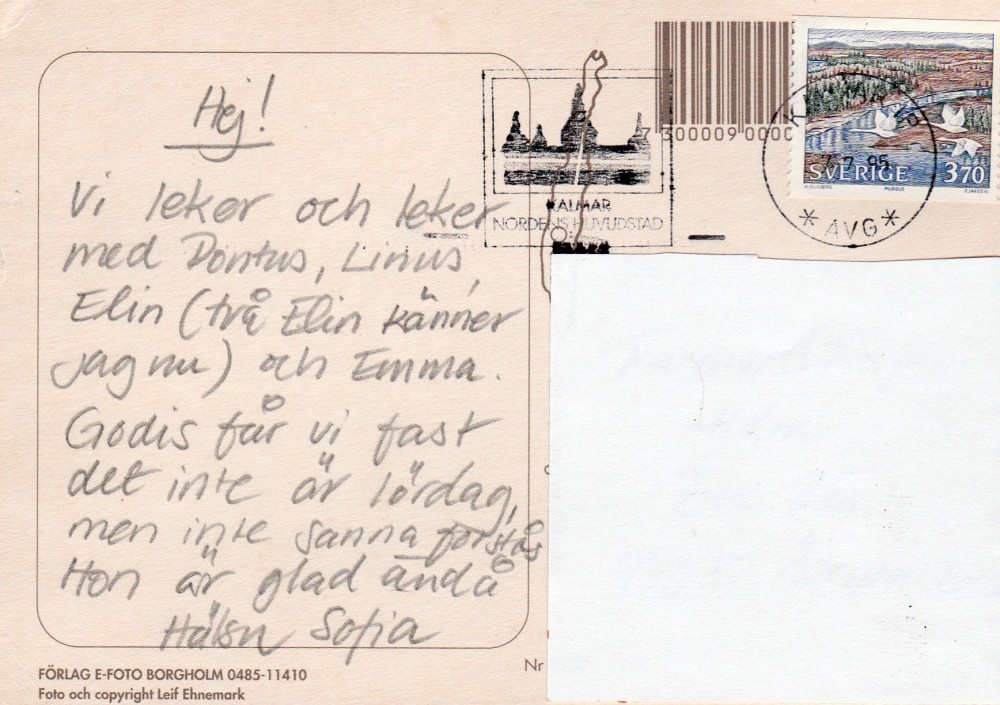 Hej!
Vi leker och leker
med Pontus, Linus,
Elin (två Elin känner
jag nu) och Emma.
Godis får vi fast
det inte är lördag,
men inte Sanna förstås
Hon är glad ändå
Hälsn Sofia
FÖRLAG E-FOTO BORGHOLM 0485-11410
Foto och copyright Leif Ehnemark
Nr
KALMAR
NORDENS HUVUDSTAD
7 300009 0000
SVERIGE 370
MUDDUS
7.95
* AVG *